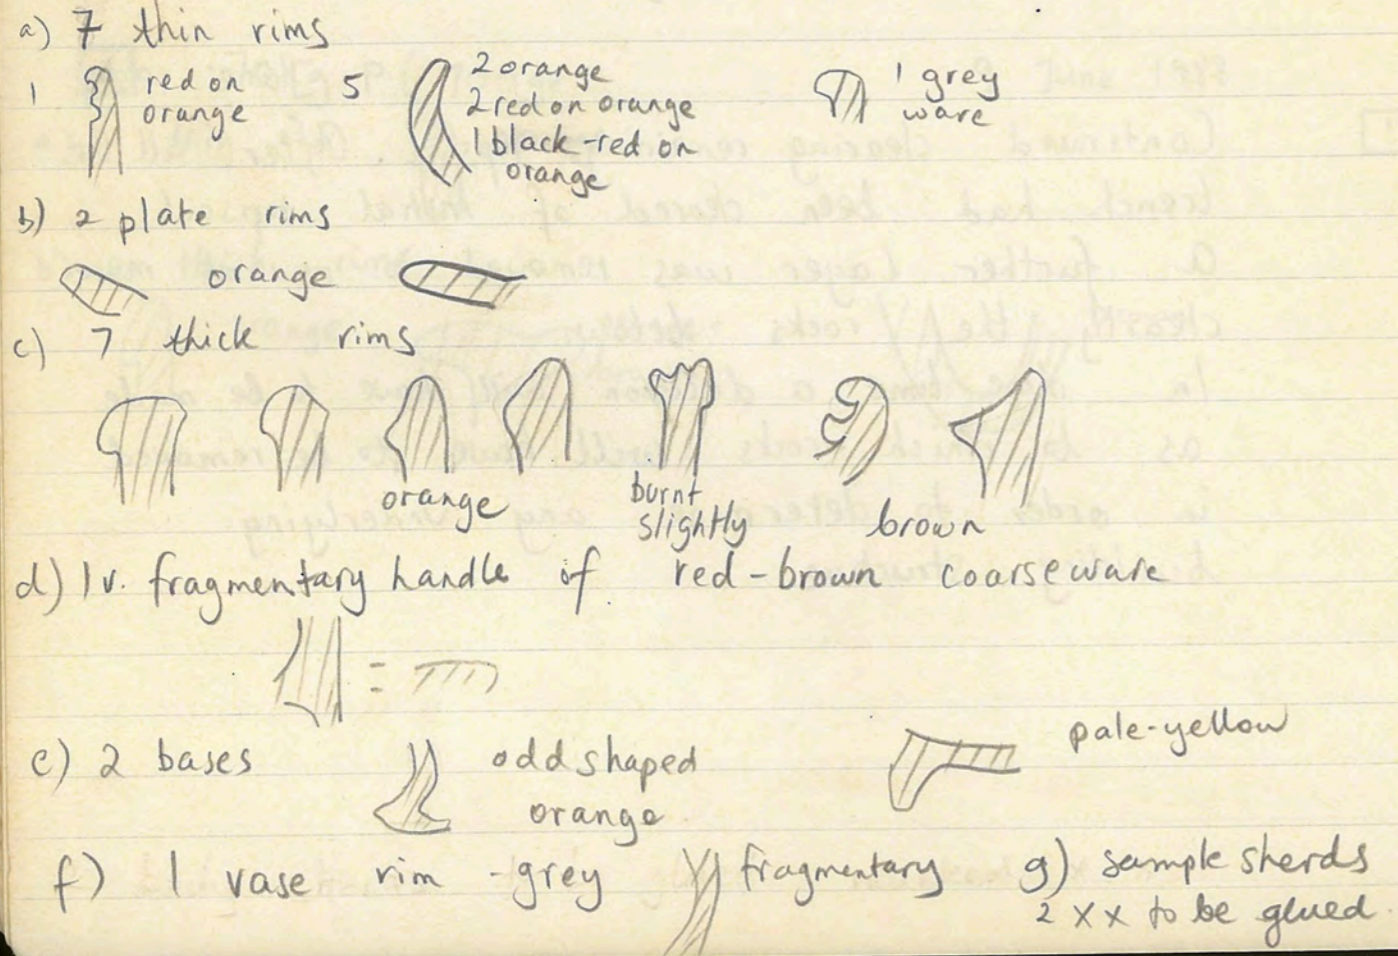 a) 7 thin rims
1 red on orange 5 2 orange
2 red on orange
1 black-red on orange
1 grey ware
b) 2 plate rims
orange
c) 7 thick rims
orange
burnt slightly
brown
d) 1 v. fragmentary handle of red-brown coarseware
=
e) 2 bases odd shaped orange pale-yellow
f) 1 vase rim -grey fragmentary g) sample sherds
2 x x to be glued.